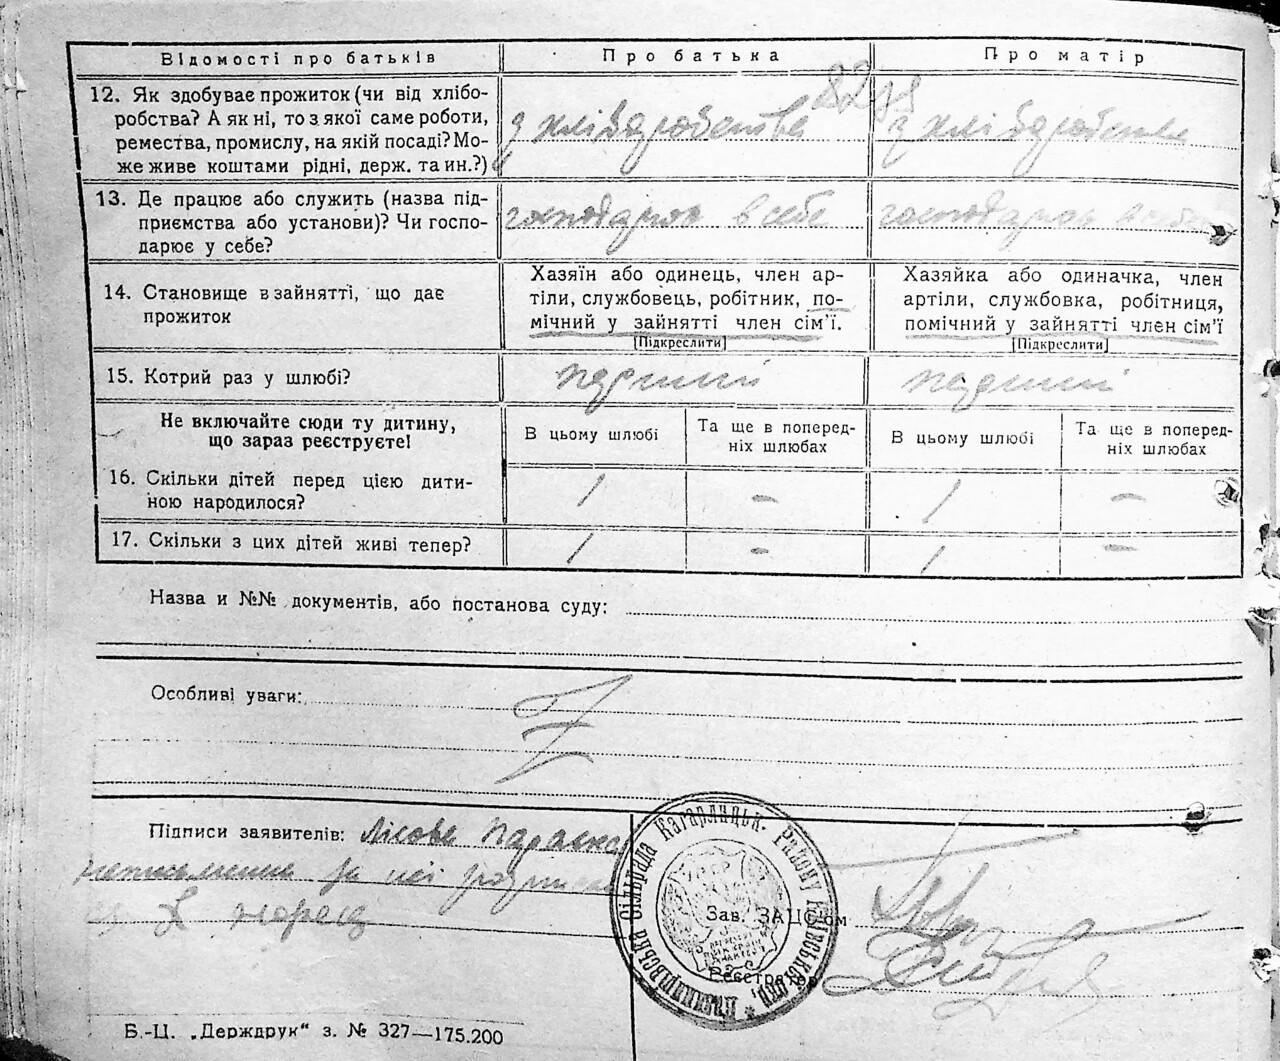 Відомості про батьків
Про батька
Про матір
82 зв
12. Як здобуває прожиток (чи від хлібо-
робства? А як ні, то з якої саме роботи,
ремества, промислу, на якій посаді? Мо-
же живе коштами рідні, держ. та ин.?)
з хліборобства
з хліборобства
13. Де працює або служить (назва під-
приємства або установи)? Чи госпо-
дарює у себе?
господарює в себе
господарює в себе
14. Становище в зайнятті, що дає
прожиток
Хазяїн або одинець, член ар-
тіли, службовець, робітник, по-
мічний у зайнятті член сім'ї.
[Підкреслити]
Хазяйка або одиначка, член
артіли, службовка, робітниця,
помічний у зайнятті член сім'ї
[Підкреслити]
15. Котрий раз у шлюбі?
перший
перший
Не включайте сюди ту дитину,
що зараз реєструєте!
В цьому шлюбі
Та ще в поперед-
ніх шлюбах
В цьому шлюбі
Та ще в поперед-
ніх шлюбах
16. Скільки дітей перед цією дити-
ною народилося?
1
-
1
-
17. Скільки з цих дітей живі тепер?
1
-
1
-
Назва и №№ документів, або постанова суду:
Особливі уваги:
Підписи заявителів: Лісова Параска
неписьменна за неї
сільрада Кагарлицьк. Району Київської
Зав. ЗАЦС'ом
Реєстратор
Б.-Ц. „Держдрук" з. № 327—175.200